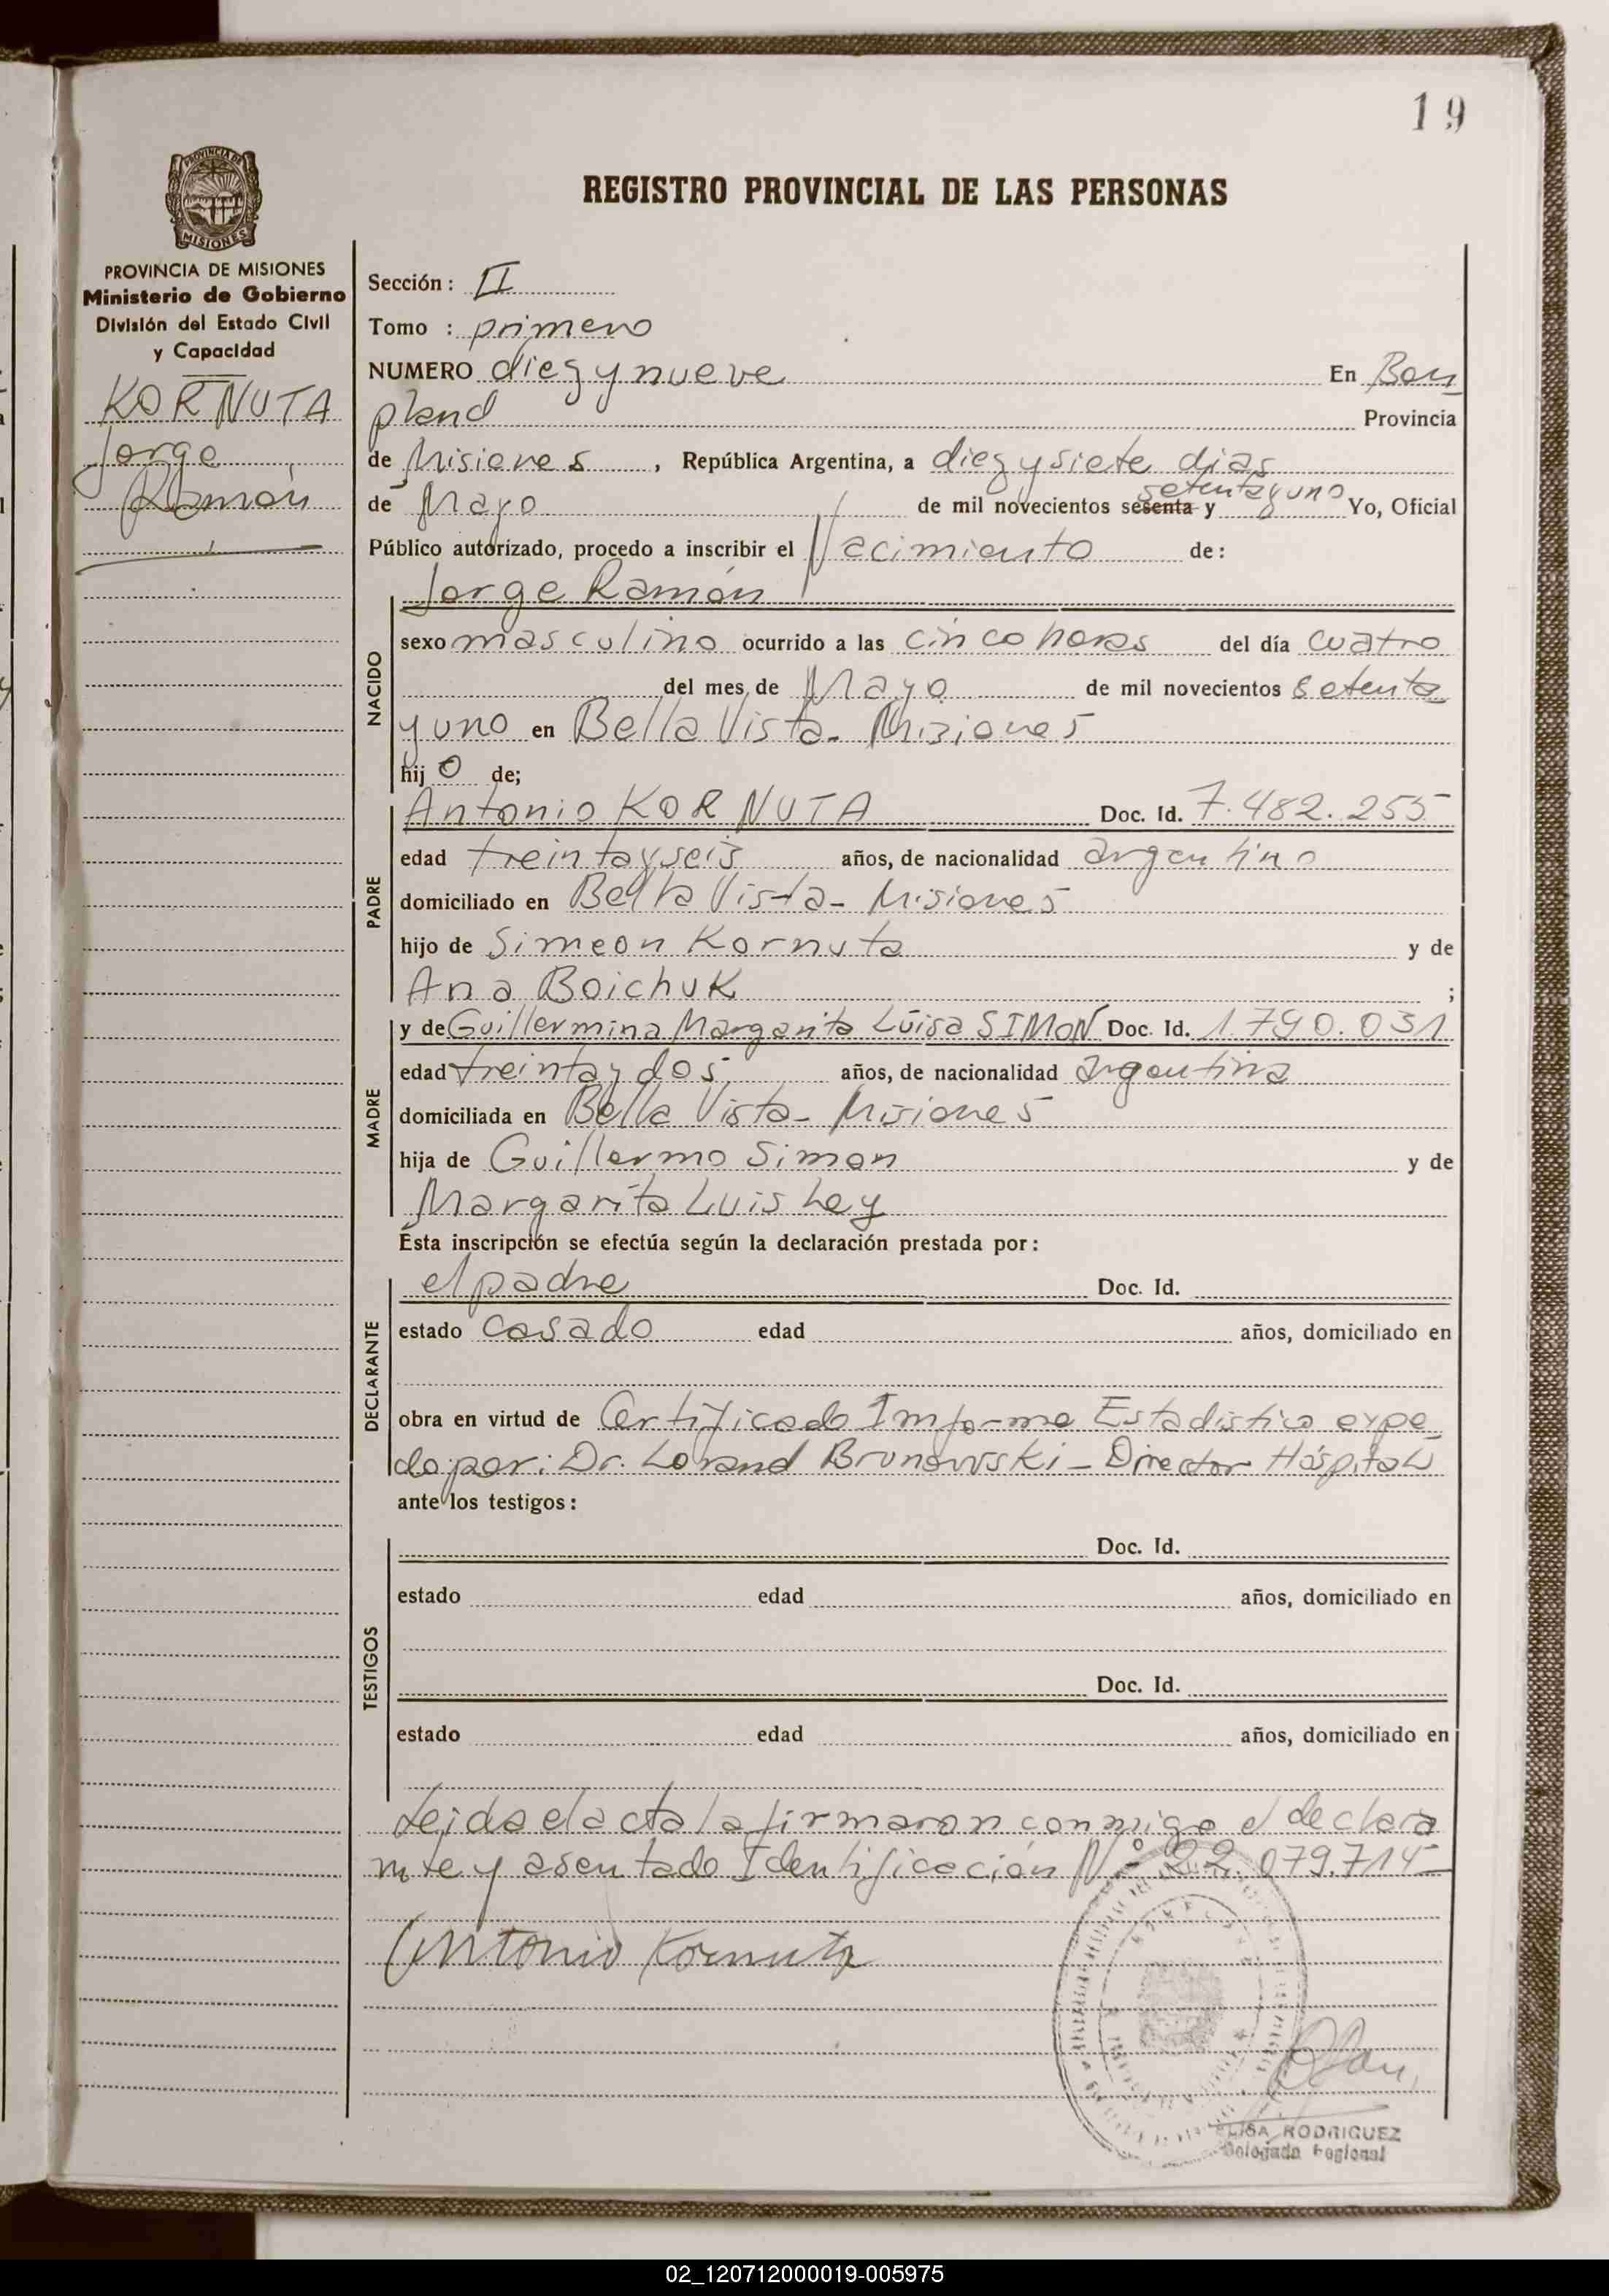 19
PROVINCIA DE
MISIONES
REGISTRO PROVINCIAL DE LAS PERSONAS
PROVINCIA DE MISIONES
Ministerio de Gobierno
División del Estado Civil
y Capacidad
KORNUTA
Jorge
Ramón
Sección : II
Tomo : primero
NUMERO diez y nueve En Bon
pland Provincia
de Misiones, República Argentina, a diez y siete dias
de Mayo de mil novecientos sesenta y setenta y uno Yo, Oficial
Público autorizado, procedo a inscribir el Nacimiento de:
NACIDO
Jorge Ramón
sexo masculino ocurrido a las cinco horas del día cuatro
del mes de Mayo de mil novecientos setenta
y uno en Bella Vista - Misiones
hij o de;
PADRE
Antonio KORNUTA Doc. Id. 7.482.255
edad treinta y seis años, de nacionalidad argentino
domiciliado en Bella Vista - Misiones
hijo de Simeon Kornuta y de
Ana Boichuk ;
MADRE
y de Guillermina Margarita Luisa SIMON Doc. Id. 1.790.031
edad treinta y dos años, de nacionalidad argentina
domiciliada en Bella Vista - Misiones
hija de Guillermo Simon y de
Margarita Luis Ley
Esta inscripción se efectúa según la declaración prestada por :
DECLARANTE
el padre Doc. Id.
estado casado edad años, domiciliado en
obra en virtud de Certificado Imforme Estadistico expe
do por: Dr. Lorand Brunowski - Director Hóspital
ante los testigos :
TESTIGOS
Doc. Id.
estado edad años, domiciliado en
Doc. Id.
estado edad años, domiciliado en
Leida el acta la firmaron conmigo el declara
nte y asentado Identificación Nº 22.079.714
Antonio Kornuta
ELISA RODRIGUEZ
Delegada Regional
02_120712000019-005975